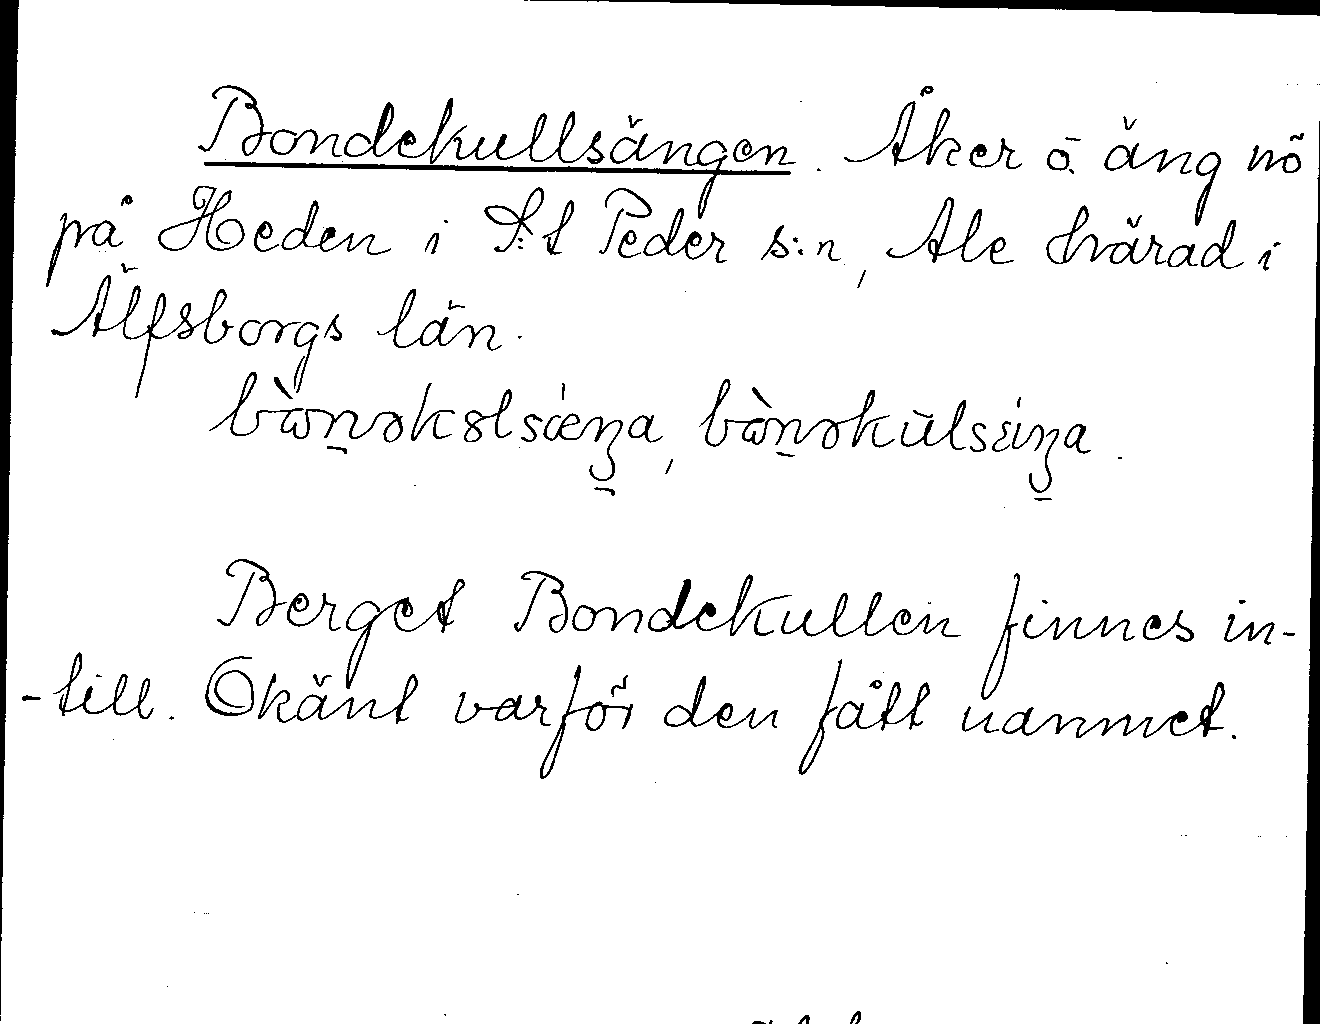 Bondekullsängen. Åker o. äng nö
på Heden i S:t Peder s:n, Ale härad i
Älfsborgs län.
Berget Bondekullen finnes in-
-till. Okänt varför den fått namnet.